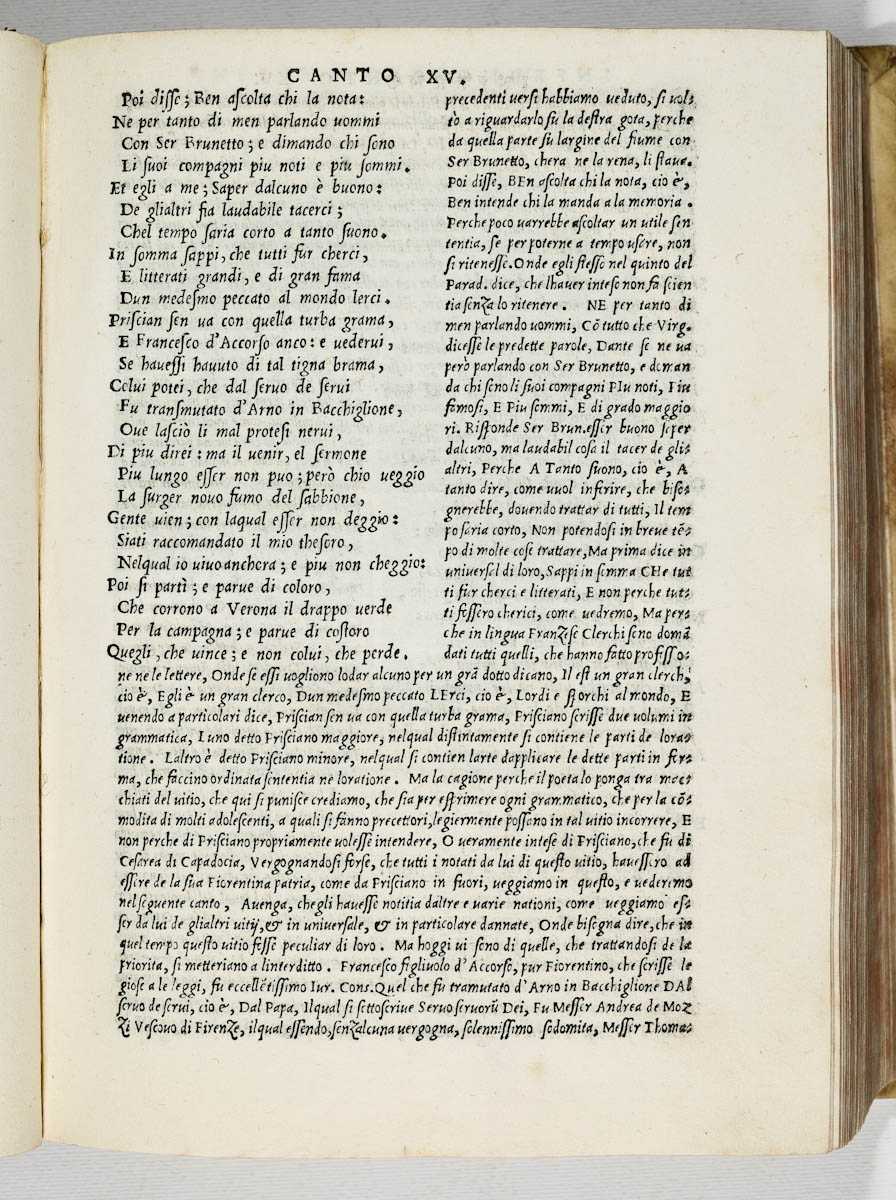 CANTO XV.
Poi disse; Ben ascolta chi la nota:
Ne per tanto di men parlando uommi
Con Ser Brunetto; e dimando chi sono
Li suoi compagni piu noti e piu sommi.
Et egli a me; Saper dalcuno è buono:
De glialtri fia laudabile tacerci;
Chel tempo saria corto a tanto suono.
In somma sappi, che tutti fur cherci,
E litterati grandi, e di gran fama
Dun medesmo peccato al mondo lerci.
Priscian sen ua con quella turba grama,
E Francesco d'Accorso anco: e uederui,
Se hauessi hauuto di tal tigna brama,
Colui potei, che dal seruo de serui
Fu transmutato d'Arno in Bacchiglione,
Oue lasciò li mal protesi nerui,
Di piu direi: ma il uenir, el sermone
Piu lungo esser non puo; però chio ueggio
La surger nouo fumo del sabbione,
Gente uien; con laqual esser non deggio:
Siati raccomandato il mio thesoro,
Nelqual io uiuo anchora; e piu non cheggio:
Poi si partì; e parue di coloro,
Che corrono a Verona il drappo uerde
Per la campagna; e parue di costoro
Quegli, che uince; e non colui, che perde.
precedenti uersi habbiamo ueduto, si uol-
tò a riguardarlo su la destra gota, perche
da quella parte su largine del fiume con
Ser Brunetto, chera ne la rena, li staua.
Poi disse, BEn ascolta chi la nota, cio è,
Ben intende chi la manda a la memoria.
Perche poco uarrebbe ascoltar un utile sen
tentia, se per poterne a tempo usare, non
si ritenesse. Onde egli stesso nel quinto del
Parad. dice, che lhauer inteso non fa scien
tia senza lo ritenere. NE per tanto di
men parlando uommi, Cō tutto che Virg.
dicesse le predette parole, Dante se ne ua
però parlando con Ser Brunetto, e diman
da chi sono li suoi compagni Piu noti, Piu
famosi, E Piu sommi, E di grado maggio
ri. Risponde Ser Brun. esser buono saper
dalcuno, ma laudabil cosa il tacer de gli-
altri, Perche A Tanto suono, cio è, A
tanto dire, come uuol inferire, che biso-
gnerebbe, douendo trattar di tutti, Il tem
po saria corto, Non potendosi in breue tē-
po di molte cose trattare, Ma prima dice in
uniuersal di loro, Sappi in somma CHe tut
ti fur cherci e litterati, E non perche tut-
ti fossero cherici, come uedremo, Ma per-
che in lingua Franzese Clerchi sono domā
dati tutti quelli, che hanno fatto professo-
ne ne le lettere, Onde se essi uogliono lodar alcuno per un grā dotto dicano, Il est un gran clerch,
cio è, Egli è un gran clerco, Dun medesmo peccato LErci, cio è, Lordi e sporchi al mondo, E
uenendo a particolari dice, Priscian sen ua con quella turba grama, Prisciano scrisse due uolumi in
grammatica, Luno detto Prisciano maggiore, nelqual distintamente si contiene le parti de lora-
tione. Laltro è detto Prisciano minore, nelqual si contien larte dapplicare le dette parti in for-
ma, che faccino ordinata sententia ne loratione. Ma la cagione perche il poeta lo ponga tra mac-
chiati del uitio, che qui si punisce crediamo, che sia per esprimere ogni grammatico, che per la cō-
modita di molti adolescenti, a quali si fanno precettori, legiermente possano in tal uitio incorrere, E
non perche di Prisciano propriamente uolesse intendere, O ueramente intese di Prisciano, che fu di
Cesarea di Capadocia, Vergognandosi forse, che tutti i notati da lui di questo uitio, hauessero ad
essere de la sua Fiorentina patria, come da Prisciano in fuori, ueggiamo in questo, e uederemo
nel seguente canto, Auenga, chegli hauesse notitia daltre e uarie nationi, come ueggiamo es-
ser da lui de glialtri uitij, & in uniuersale, & in particolare dannate, Onde bisogna dire, che in
quel tempo questo uitio fosse peculiar di loro. Ma hoggi ui sono di quelle, che trattandosi de la
priorita, si metteriano a linterditto. Francesco figliuolo d'Accorso, pur Fiorentino, che scrisse le
giose a le leggi, fu eccellētissimo Iur. Cons. Quel che fu tramutato d'Arno in Bacchiglione DAl
seruo de serui, cio è, Dal Papa, Ilqual si sottoscriue Seruo seruorū Dei, Fu Messer Andrea de Moz
zi Vescouo di Firenze, ilqual essendo, senzalcuna uergogna, solennissimo sodomita, Messer Thoma-